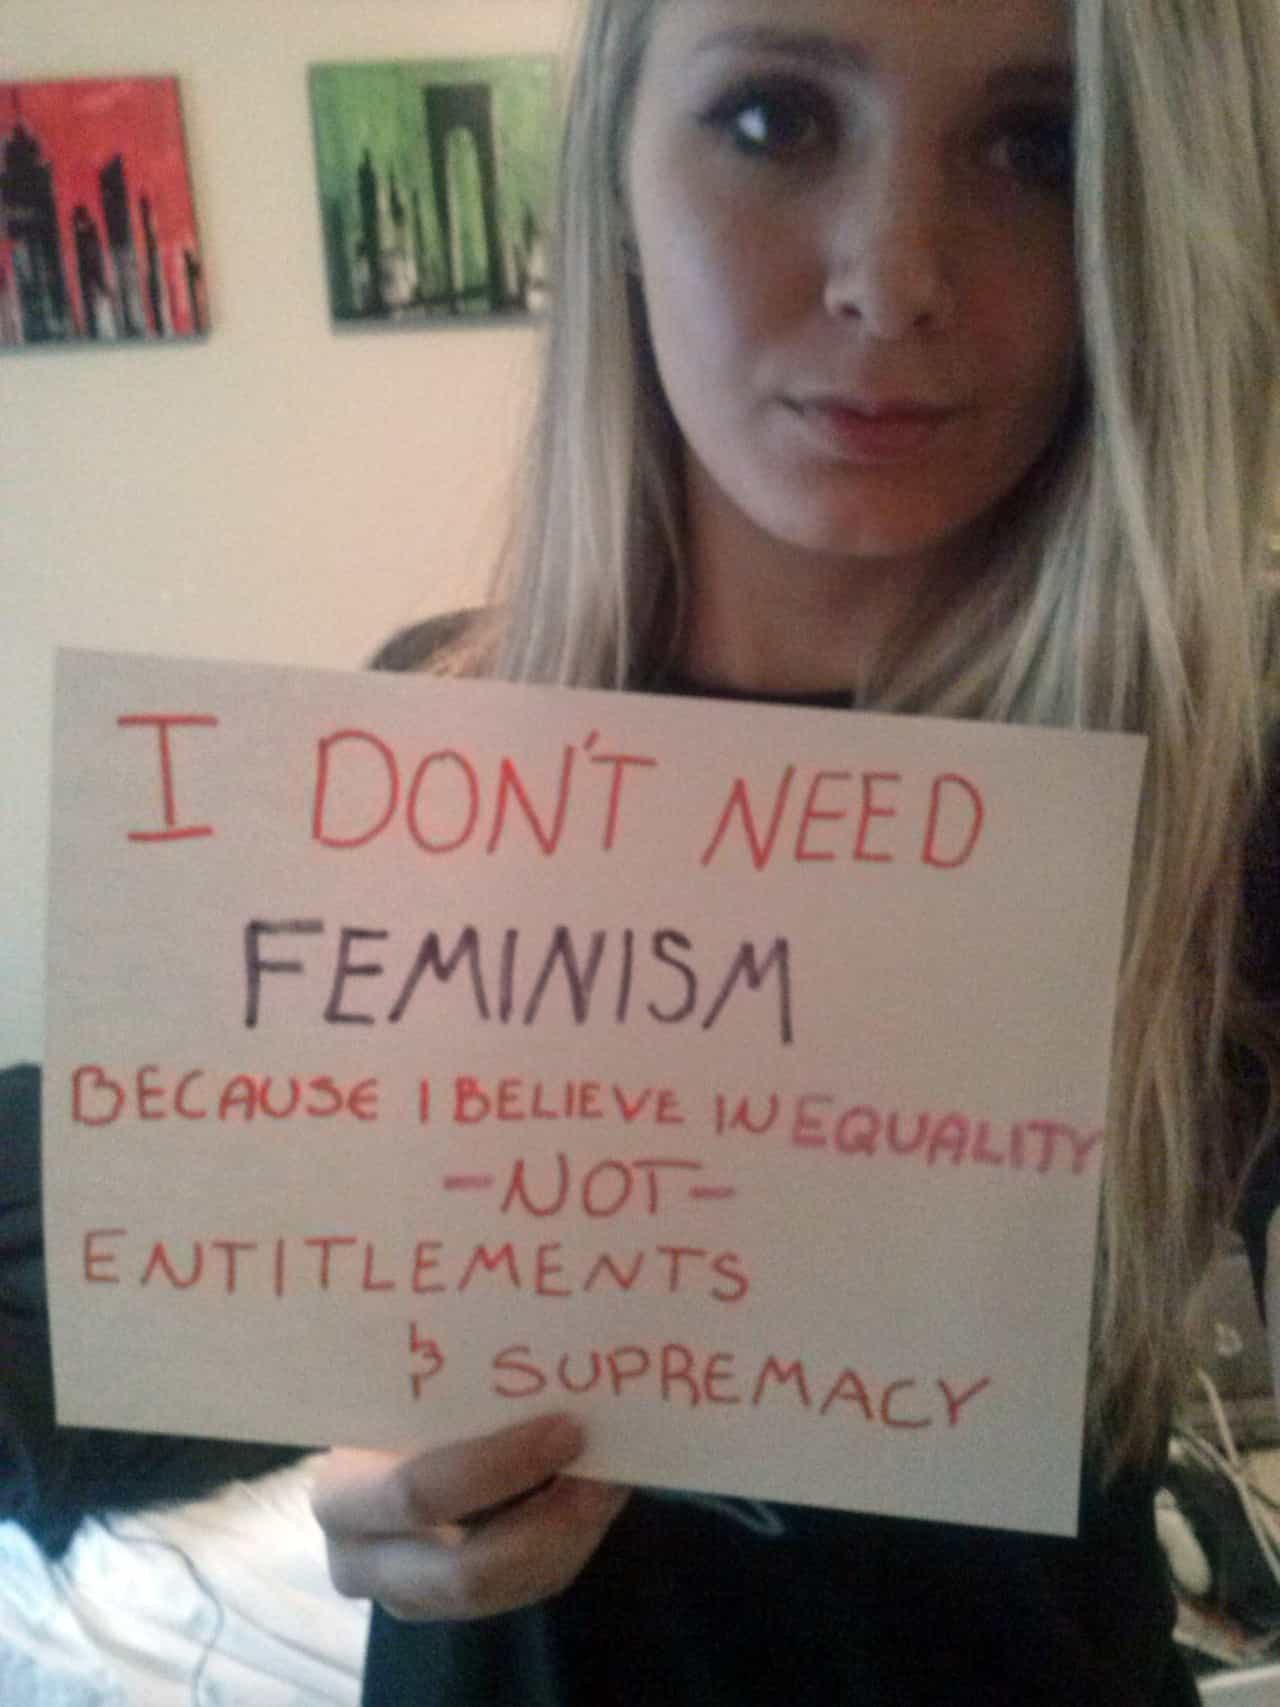 I DON'T NEED
FEMINISM
BECAUSE I BELIEVE IN EQUALITY
-NOT-
ENTITLEMENTS
& SUPREMACY